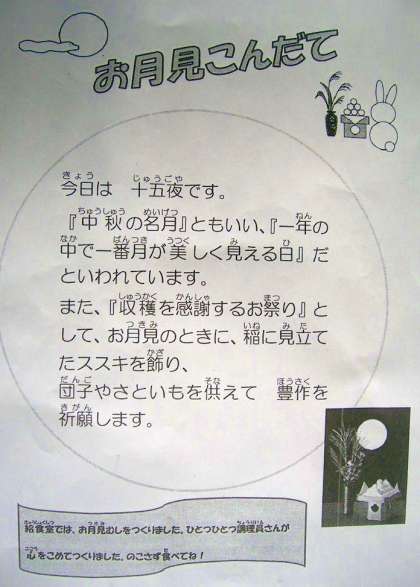 お月見こんだて
今日は　十五夜です。
『中秋の名月』ともいい、『一年の
中で一番月が美しく見える日』だ
といわれています。
また、『収穫を感謝するお祭り』と
して、お月見のときに、稲に見立て
たススキを飾り、
団子やさといもを供えて　豊作を
祈願します。
給食室では、お月見むしをつくりました。ひとつひとつ調理員さんが
心をこめてつくりました。のこさず食べてね！